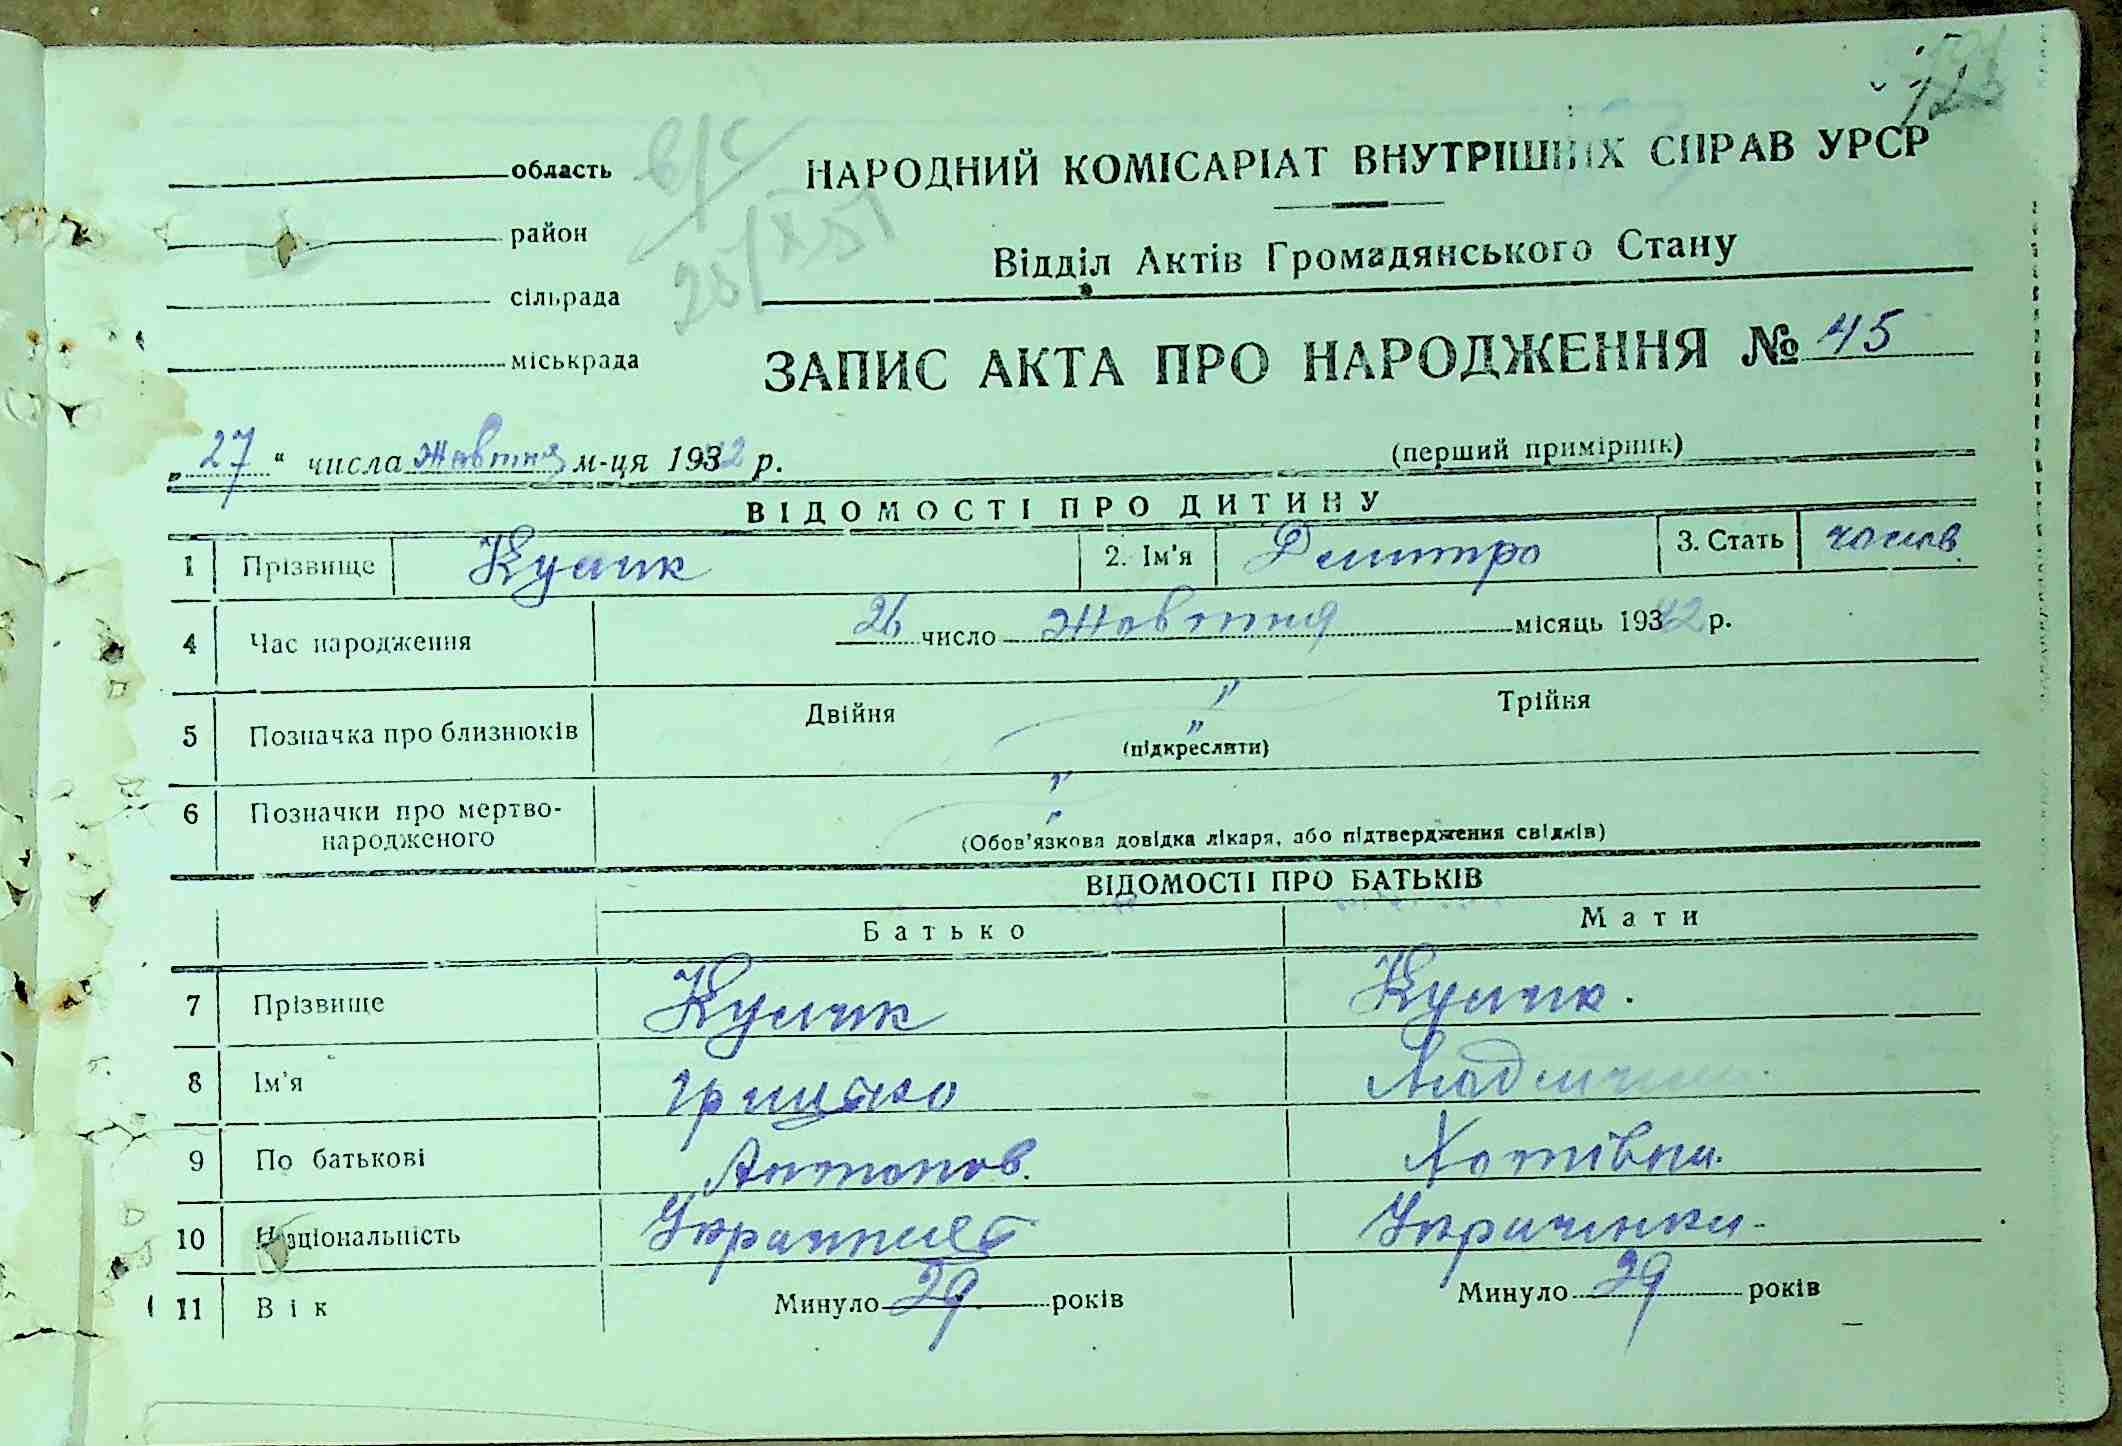 область
район
сільрада
міськрада
в/с
НАРОДНИЙ КОМІСАРІАТ ВНУТРІШНІХ СПРАВ УРСР
Відділ Актів Громадянського Стану
ЗАПИС АКТА ПРО НАРОДЖЕННЯ № 45
„27“ числа Жовтня м-ця 1942 р.
(перший примірник)
ВІДОМОСТІ ПРО ДИТИНУ
1 Прізвище Кулик 2. Ім'я Дмитро 3. Стать чолов.
4 Час народження 26 число Жовтня місяць 1942 р.
5 Позначка про близнюків Двійня " Трійня
"
(підкреслити)
6 Позначки про мертво-
народженого
(Обов'язкова довідка лікаря, або підтвердження свідків)
ВІДОМОСТІ ПРО БАТЬКІВ
Батько Мати
7 Прізвище Кулик Кулик.
8 Ім'я Грицько
9 По батькові Антонов.
10 Національність Українець Українка
11 Вік Минуло 29 років Минуло 29 років